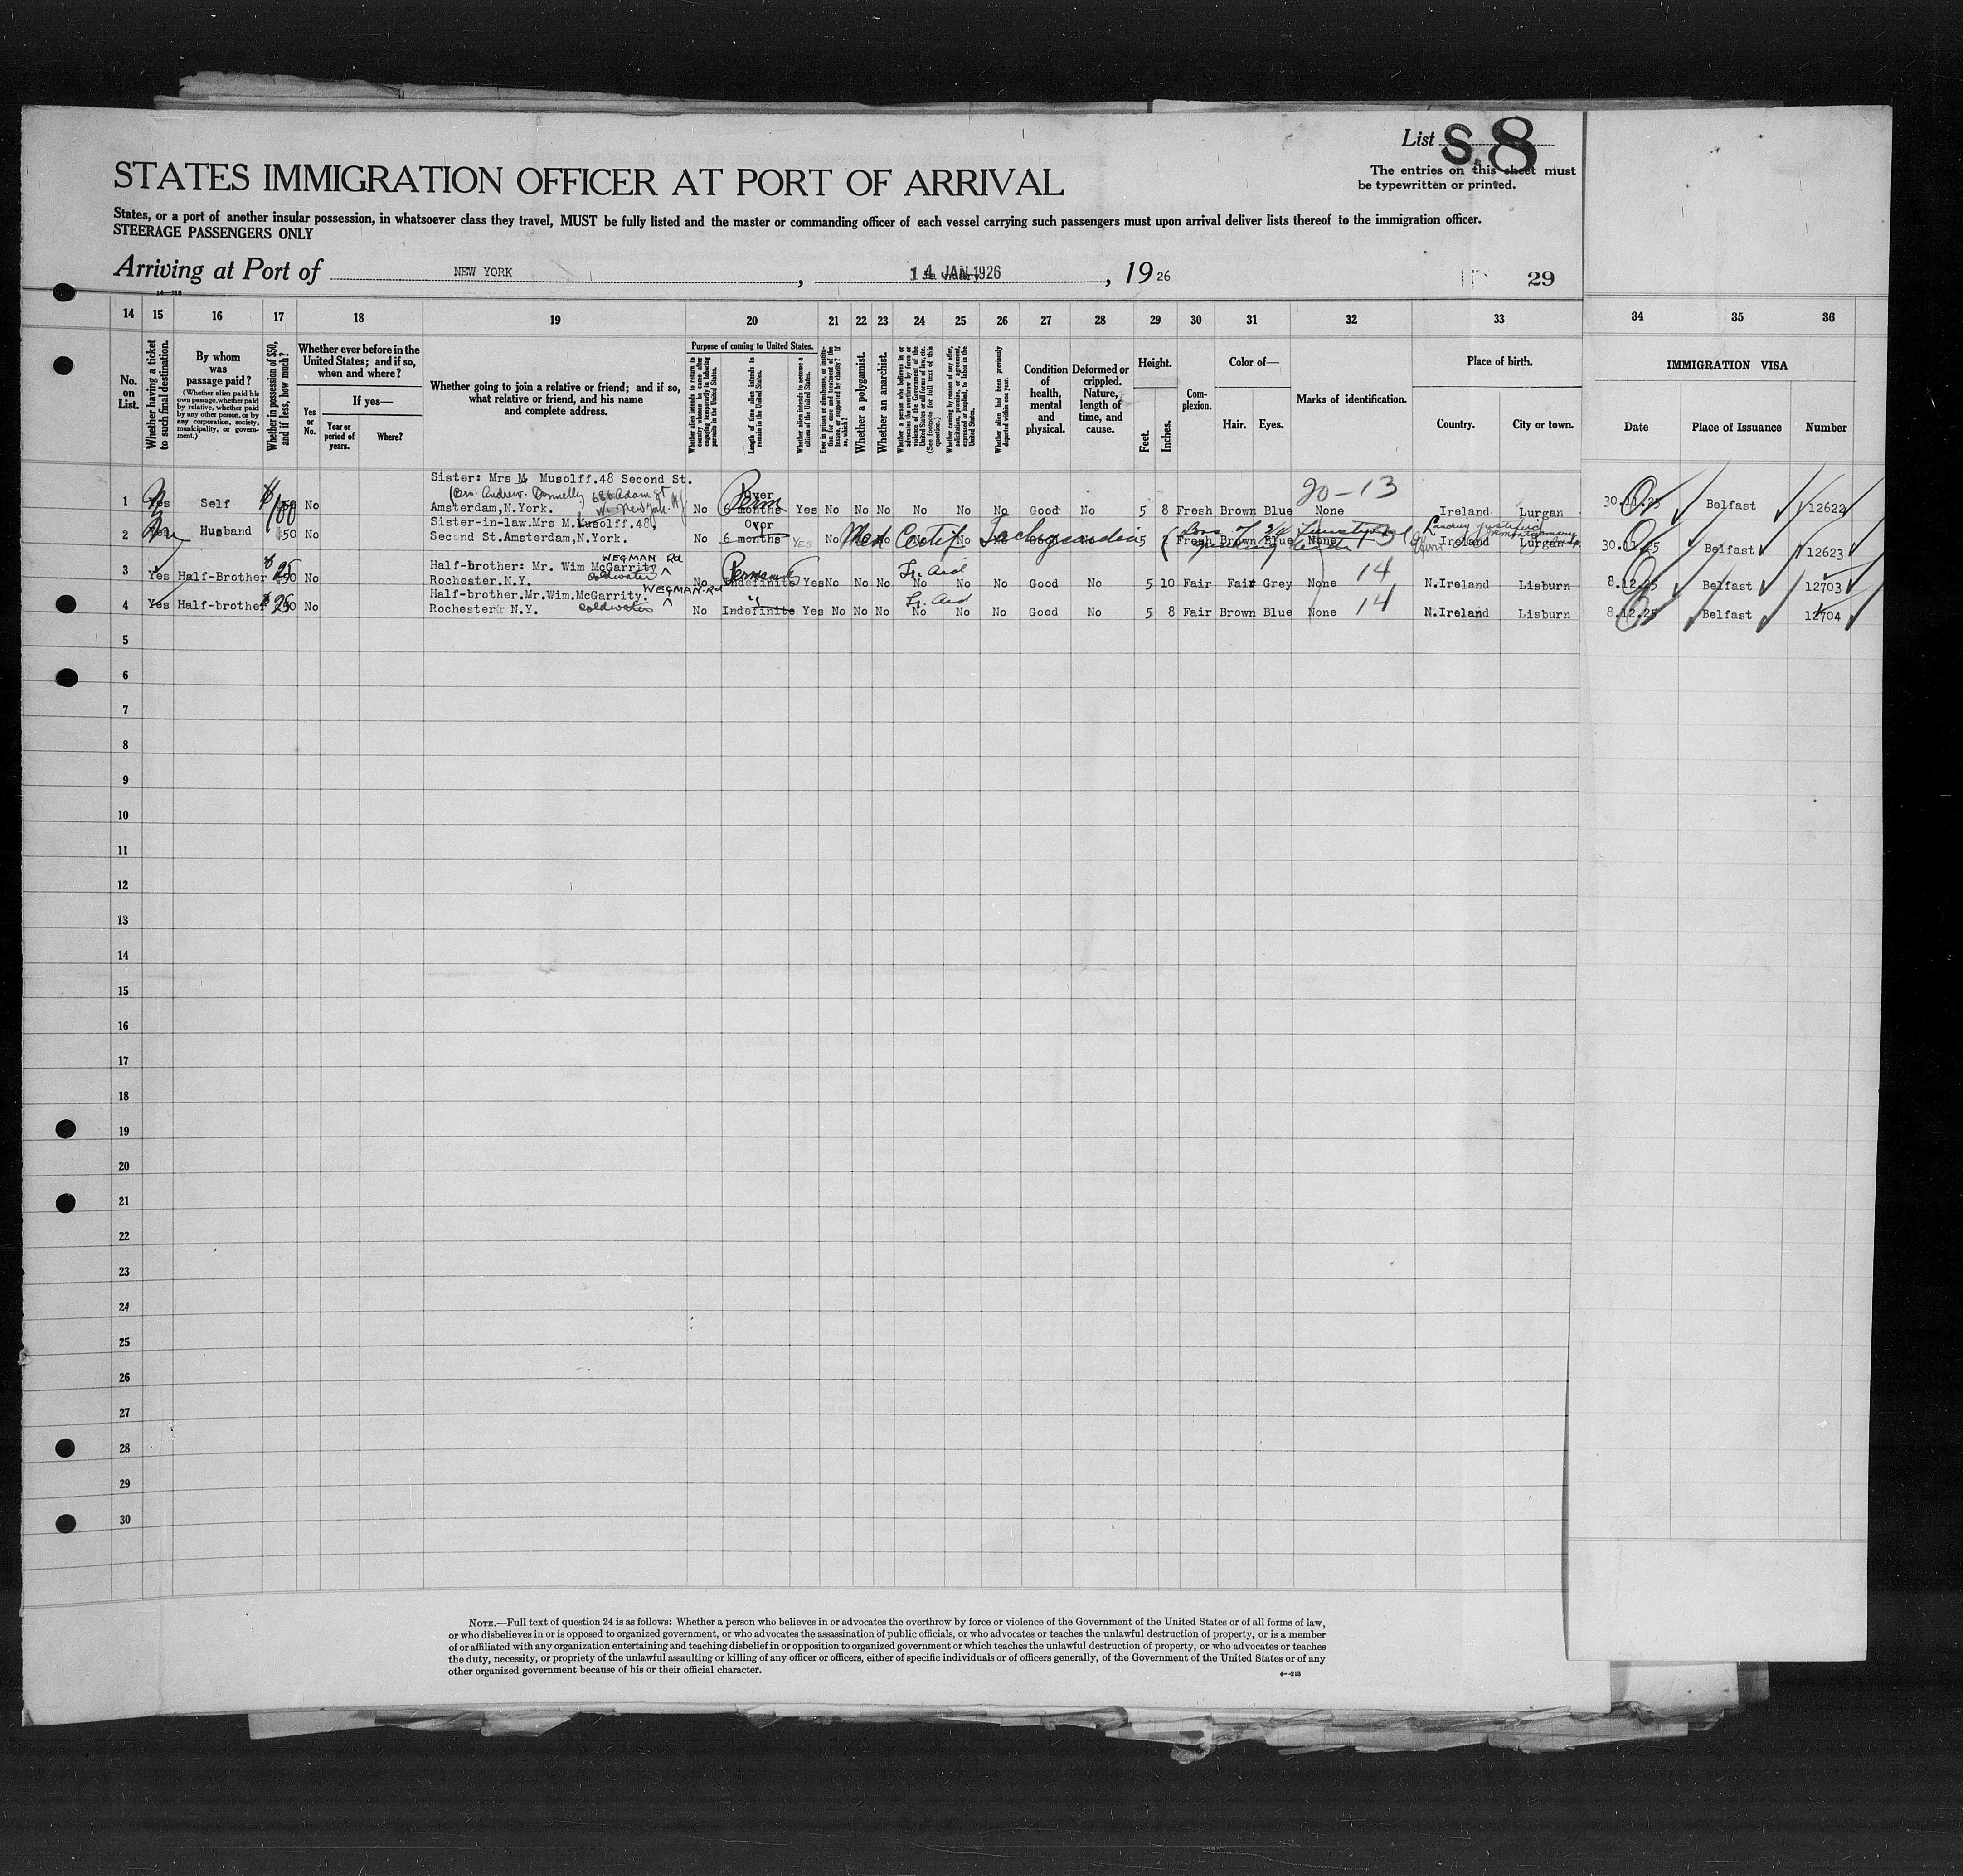 List S. 8
The entries on this sheet must
be typewritten or printed.
STATES IMMIGRATION OFFICER AT PORT OF ARRIVAL
States, or a port of another insular possession, in whatsoever class they travel, MUST be fully listed and the master or commanding officer of each vessel carrying such passengers must upon arrival deliver lists thereof to the immigration officer.
STEERAGE PASSENGERS ONLY
Arriving at Port of NEW YORK, 14 JAN 1926, 1926
29
14—213
14 15 16 17 18 19 20 21 22 23 24 25 26 27 28 29 30 31 32 33 34 35 36
No. on List.
Whether having a ticket to such final destination.
By whom was passage paid?
(Whether alien paid his own passage, whether paid by relative, whether paid by any other person, or by any corporation, society, municipality, or government.)
Whether in possession of $50, and if less, how much?
Whether ever before in the United States; and if so, when and where?
Yes or No.
If yes—
Year or period of years.
Where?
Whether going to join a relative or friend; and if so, what relative or friend, and his name and complete address.
Purpose of coming to United States.
Whether alien intends to return to country whence he came after engaging temporarily in laboring pursuits in the United States.
Length of time alien intends to remain in the United States.
Whether alien intends to become a citizen of the United States.
Ever in prison or almshouse, or institution for care and treatment of the insane, or supported by charity? If so, which?
Whether a polygamist.
Whether an anarchist.
Whether a person who believes in or advocates the overthrow by force or violence of the Government of the United States or all forms of law, etc. (See footnote for full text of this question.)
Whether coming by reason of any offer, solicitation, promise, or agreement, expressed or implied, to labor in the United States.
Whether alien had been previously deported within one year.
Condition of health, mental and physical.
Deformed or crippled. Nature, length of time, and cause.
Height.
Feet. Inches.
Complexion.
Color of—
Hair. Eyes.
Marks of identification.
Place of birth.
Country. City or town.
IMMIGRATION VISA
Date Place of Issuance Number
Sister: Mrs M Musolff.48 Second St.
(Bro. Andrew Donnelly 686 Adam St
1 Yes Self 100 No Amsterdam,N.York. No Over 6 months Perm Yes No No No No No No Good No 5 8 Fresh Brown Blue None 20-13 Ireland Lurgan 30.11.25 Belfast 12622
Sister-in-law.Mrs M.Musolff.48,
2 Husband $50 No Second St.Amsterdam,N.York. No Over 6 months YES No Med Certif Tachycardia 5 2 Fresh Brown Blue None Ireland Lurgan 30.11.25 Belfast 12623
WEGMAN Rd
Half-brother: Mr. Wim McGarrity
3 Yes Half-Brother $25 No Rochester.N.Y. Coldwater No Indefinite Permanent Yes No No No No No No Good No 5 10 Fair Fair Grey None 14 N.Ireland Lisburn 8.12.25 Belfast 12703
Half-brother.Mr.Wim.McGarrity. WEGMAN Rd
4 Yes Half-brother $25 No Rochester N.Y. Coldwater No Indefinite " Yes No No No No No No Good No 5 8 Fair Brown Blue None 14 N.Ireland Lisburn 8.12.25 Belfast 12704
5
6
7
8
9
10
11
12
13
14
15
16
17
18
19
20
21
22
23
24
25
26
27
28
29
30
NOTE.—Full text of question 24 is as follows: Whether a person who believes in or advocates the overthrow by force or violence of the Government of the United States or of all forms of law,
or who disbelieves in or is opposed to organized government, or who advocates the assassination of public officials, or who advocates or teaches the unlawful destruction of property, or is a member
of or affiliated with any organization entertaining and teaching disbelief in or opposition to organized government or which teaches the unlawful destruction of property, or who advocates or teaches
the duty, necessity, or propriety of the unlawful assaulting or killing of any officer or officers, either of specific individuals or of officers generally, of the Government of the United States or of any
other organized government because of his or their official character.